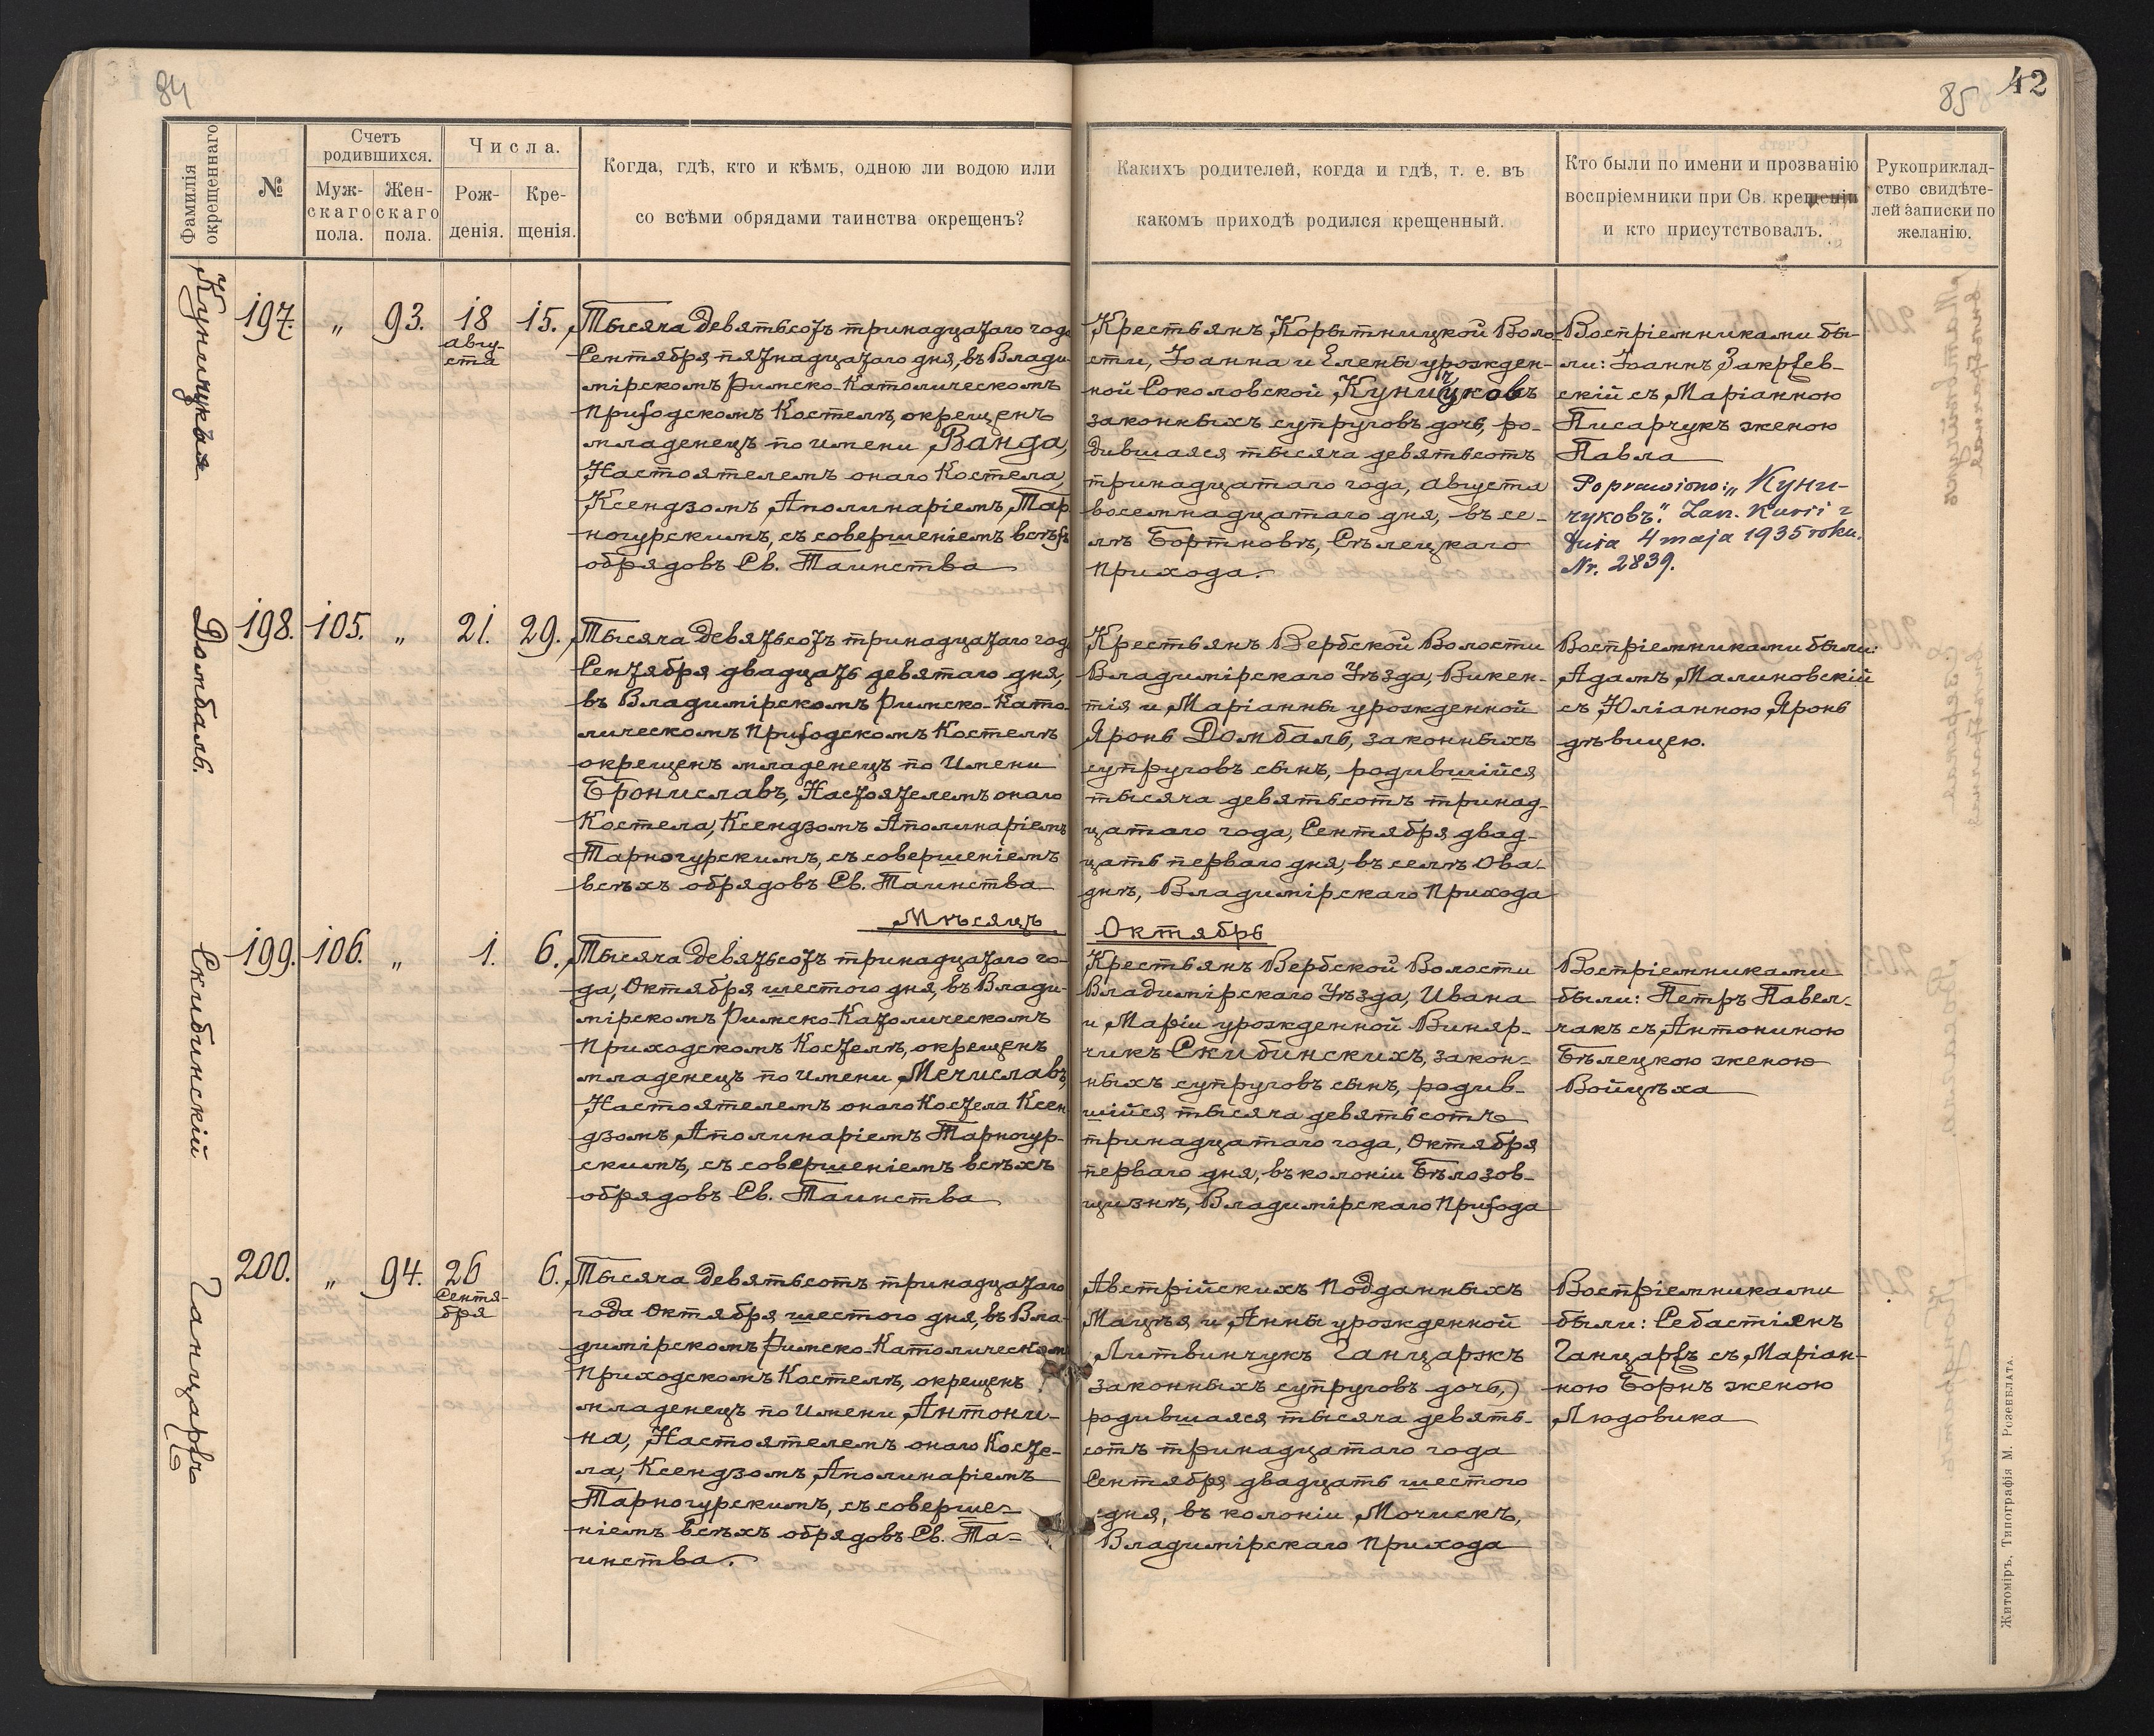 84
85
42
Фамилія окрещеннаго
№
Счетъ родившихся.
Муж-
скаго
пола.
Жен-
скаго
пола.
Числа.
Рож-
денія.
Кре-
щенія.
Когда, гдѣ, кто и кѣмъ, одною ли водою или
со всѣми обрядами таинства окрещенъ?
Какихъ родителей, когда и гдѣ, т. е. въ
какомъ приходѣ родился крещенный.
Кто были по имени и прозванію
воспріемники при Св. крещеніи
и кто присутствовалъ.
Рукоприклад-
ство свидѣте-
лей записки по
желанію.
197.
„
93.
18
авгу-
ста
15.
Тысяча девятьсотъ тринадцатаго года
Сентября пятнадцатаго дня, въ Влади-
мірскомъ Римско-Католическомъ
Приходскомъ Костелѣ, окрещенъ
младенецъ по имени Ванда,
Настоятелемъ онаго Костела,
Ксендзомъ Аполинаріемъ Тар
ногурскимъ, съ совершеніемъ всѣхъ
обрядовъ Св. Таинства
Крестьянъ Корытницкой Воло-
сти, Іоанна и Елены урожден-
ной Соколовской
законныхъ супруговъ дочь, ро-
дившаяся тысяча девятьсотъ
тринадцатаго года, Августа
восемнадцатаго дня, въ се-
лѣ Бортновѣ, Сѣлецкаго
Прихода.
Воспріемниками бы-
ли: Іоаннъ Закржев-
скій съ Маріанною
Писарчукъ женою
Павла
Poprawiono: „Куни-
чуковъ". Zan. Kurii z
dnia 4 maja 1935 roku.
Nr. 2839.
Домбаль.
198.
105.
„
21.
29.
Тысяча девятьсотъ тринадцатаго года
Сентября двадцать девятаго дня,
въ Владимірскомъ Римско-Като-
лическомъ Приходскомъ Костелѣ
окрещенъ младенецъ по Имени
Брониславъ, Настоятелемъ онаго
Костела, Ксендзомъ Аполинаріемъ
Тарногурскимъ, съ совершеніемъ
всѣхъ обрядовъ Св. Таинства
Крестьянъ Вербской Волости
Владимірскаго Уѣзда, Викен-
тія и Маріанны урожденной
Яронь Домбаль, законныхъ
супруговъ сынъ, родившійся
тысяча девятьсотъ тринад-
цатаго года, Сентября двад-
цать перваго дня, въ селѣ Ова-
днѣ, Владимірскаго Прихода
Воспріемниками были:
Адамъ Малиновскій
съ Юліанною Яронь
дѣвицею.
Мѣсяцъ Октябрь
Скибинскій
199.
106.
„
1.
6.
Тысяча девятьсотъ тринадцатаго го-
да, Октября шестого дня, въ Влади-
мірскомъ Римско-Католическомъ
Приходскомъ Костелѣ, окрещенъ
младенецъ по имени Мечиславъ,
Настоятелемъ онаго Костела Ксен
дзомъ Аполинаріемъ Тарногур-
скимъ, съ совершеніемъ всѣхъ
обрядовъ Св. Таинства
Крестьянъ Вербской Волости
Владимірскаго Уѣзда, Ивана
и Маріи урожденной Виняр-
чикъ Скибинскихъ, закон-
ныхъ супруговъ сынъ, родив-
шійся тысяча девятьсотъ
тринадцатаго года, Октября
перваго дня, въ колоніи Бѣлозов-
щизнѣ, Владимірскаго Прихода
Воспріемниками
были: Петръ Павел-
чакъ съ Антониною
Бѣлецкою женою
Войцѣха
Ганцаржъ
200.
„
94.
26
Сентя-
бря
6.
Тысяча девятьсотъ тринадцатаго
года Октября шестого дня, въ Вла-
димірскомъ Римско-Католическомъ
Приходскомъ Костелѣ, окрещенъ
младенецъ по Имени Антони-
на, Настоятелемъ онаго Косте-
ла, Ксендзомъ Аполинаріемъ
Тарногурскимъ, съ соверше-
ніемъ всѣхъ обрядовъ Св. Та-
инства.
Австрійскихъ Подданныхъ
Мацѣя и Анны урожденной
Литвинчукъ Ганцаржъ
законныхъ супруговъ дочь,
родившаяся тысяча девять-
сотъ тринадцатаго года
Сентября двадцать шестого
дня, въ колоніи Мочискъ,
Владимірскаго Прихода
Воспріемниками
были: Себастіянъ
Ганцаржъ съ Маріан-
ною Борнъ женою
Людовика
Житоміръ, Типографія М. Розенблата.